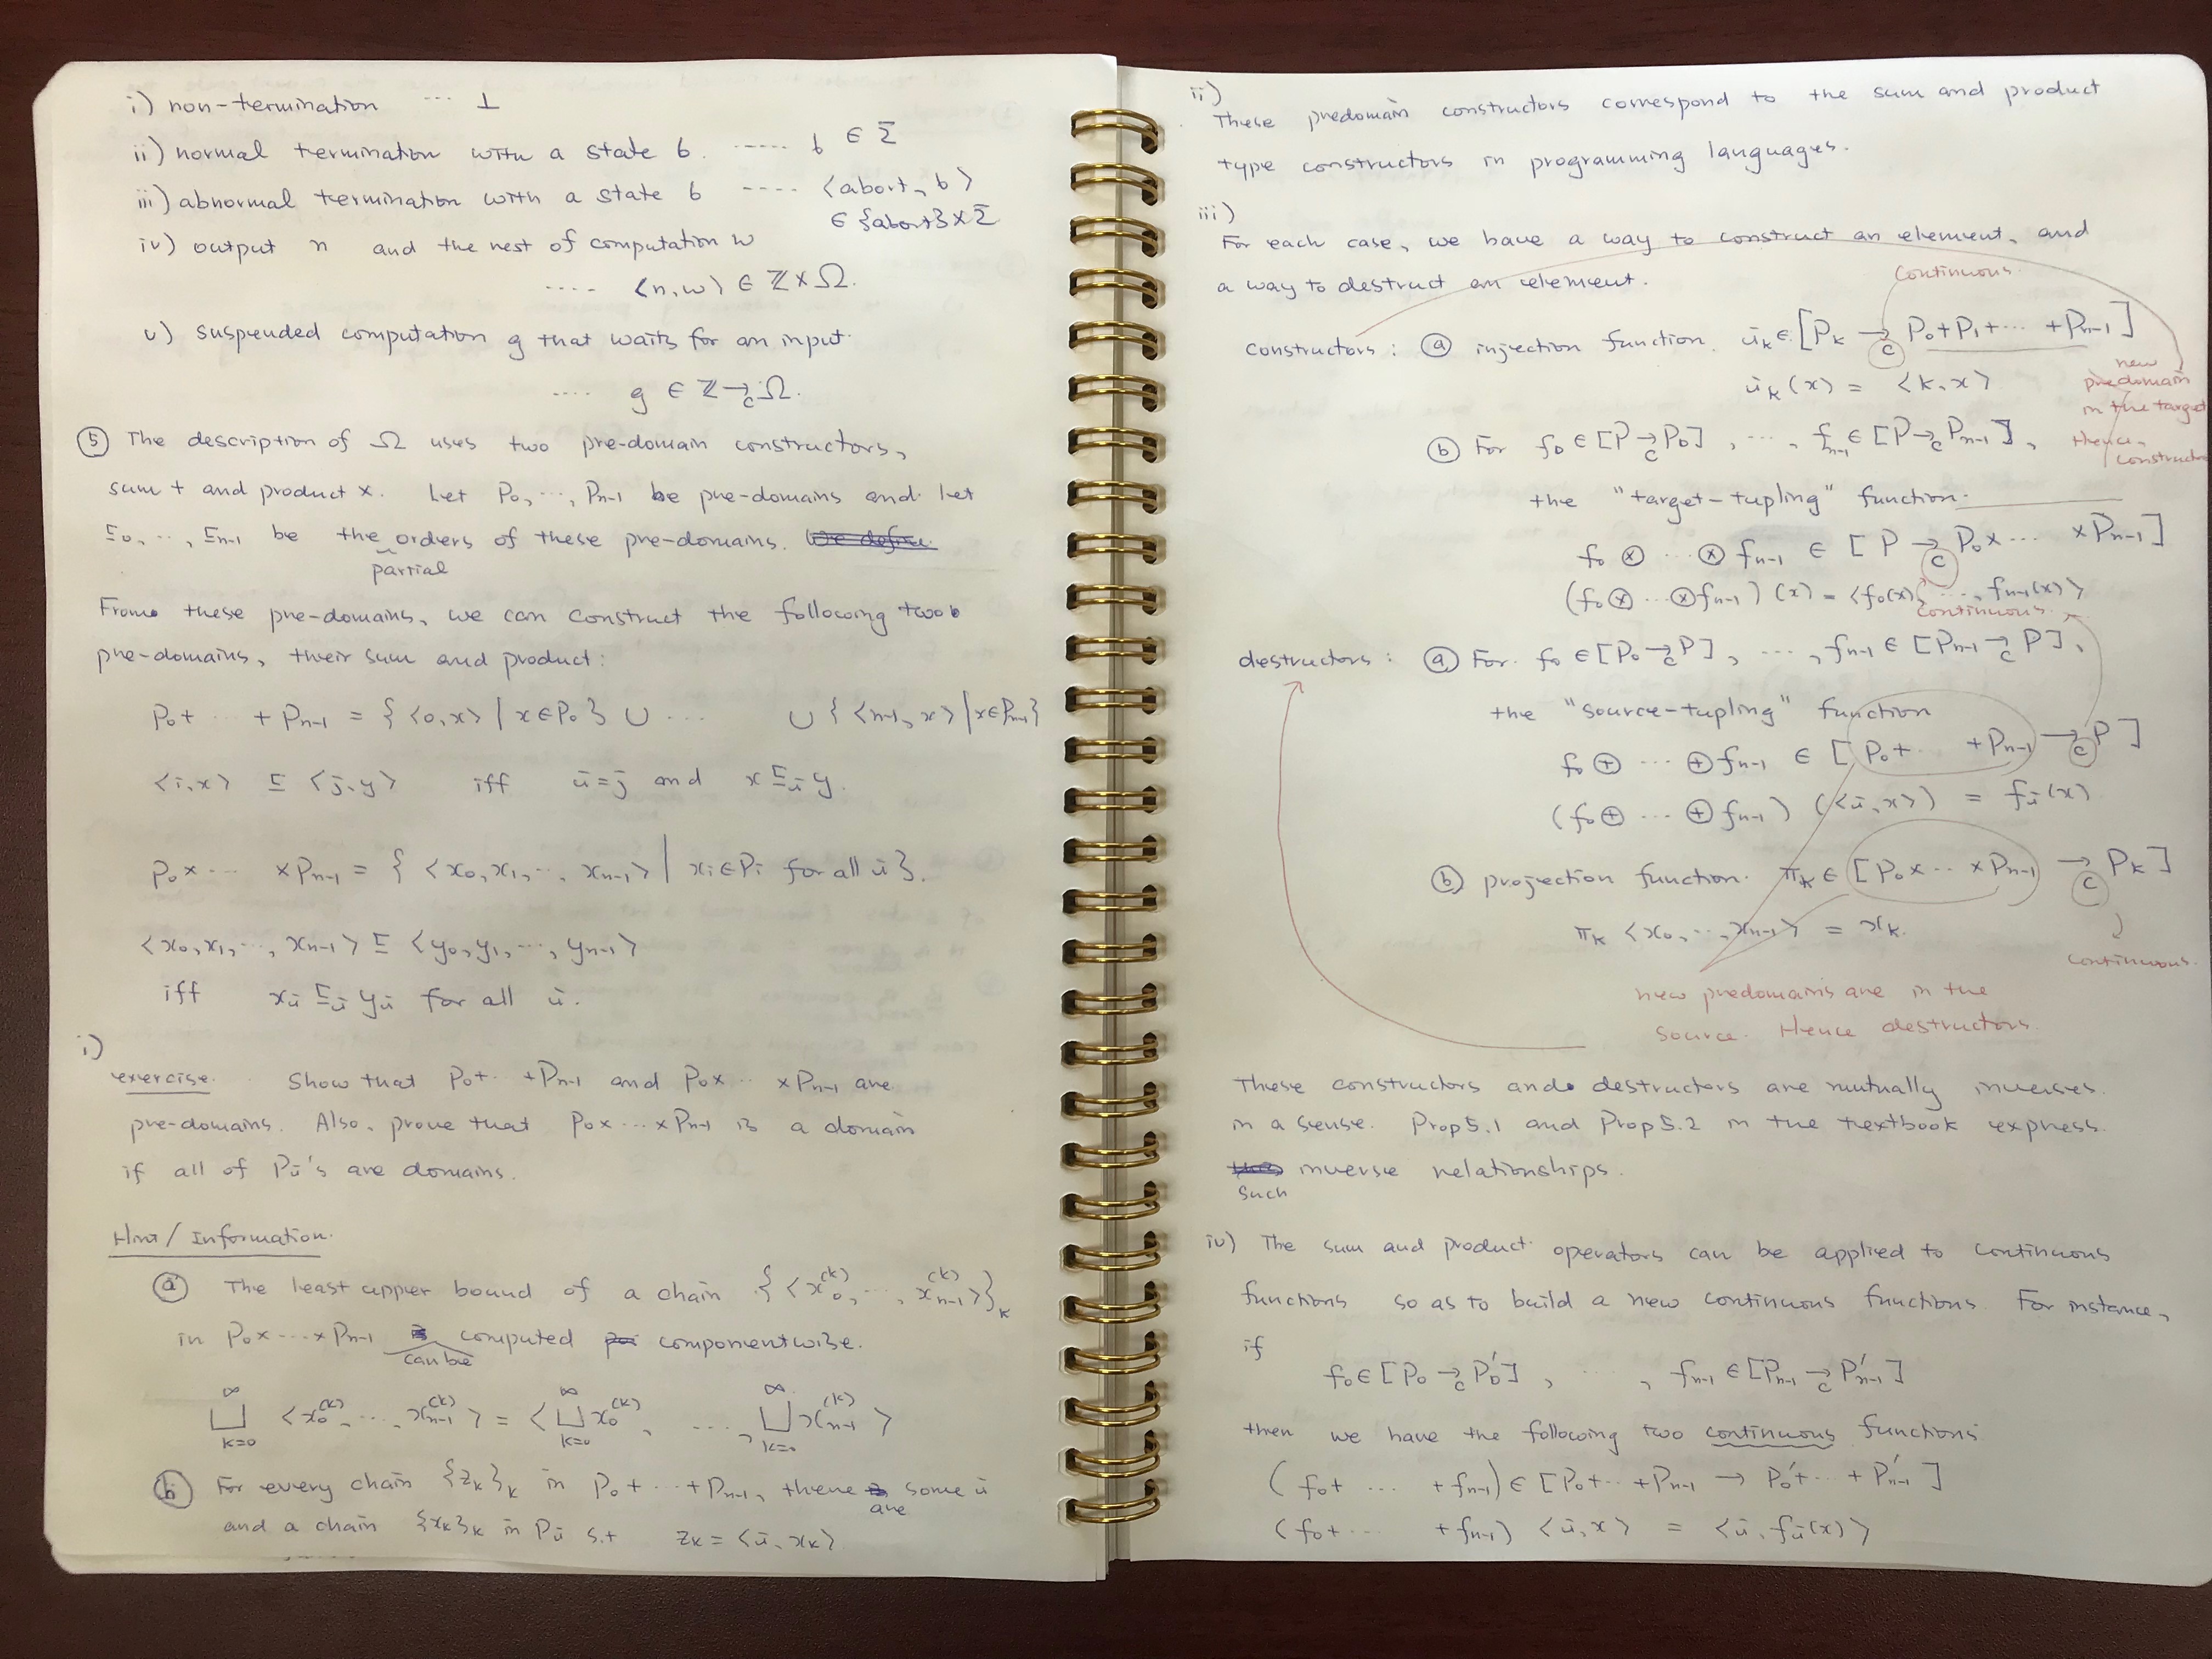 i) non-termination ... ⊥
ii) normal termination with a state σ. ..... σ ∈ Σ
iii) abnormal termination with a state σ .... ⟨abort, σ⟩
∈ {abort} × Σ
iv) output n and the rest of computation ω
.... ⟨n, ω⟩ ∈ ℤ × Ω.
v) suspended computation g that waits for an input.
.... g ∈ ℤ →c Ω.
⑤ The description of Ω uses two pre-domain constructors,
sum + and product ×. Let P₀, ..., Pn-1 be pre-domains and let
⊑₀, ..., ⊑n-1 be the partial orders of these pre-domains. We define
From these pre-domains, we can construct the following two
pre-domains, their sum and product:
P₀ + ... + Pn-1 = {⟨0, x⟩ | x ∈ P₀} ∪ ... ∪ {⟨n-1, x⟩ | x ∈ Pn-1}
⟨i, x⟩ ⊑ ⟨j, y⟩ iff i = j and x ⊑i y.
P₀ × ... × Pn-1 = {⟨x₀, x₁, ..., xn-1⟩ | xi ∈ Pi for all i}.
⟨x₀, x₁, ..., xn-1⟩ ⊑ ⟨y₀, y₁, ..., yn-1⟩
iff xi ⊑i yi for all i.
i)
exercise. Show that P₀ + .. + Pn-1 and P₀ × ... × Pn-1 are
pre-domains. Also, prove that P₀ × ... × Pn-1 is a domain
if all of Pi's are domains.
Hint / Information.
ⓐ The least upper bound of a chain {⟨x₀^(k), ..., xn-1^(k)⟩}k
in P₀ × ... × Pn-1 can be computed componentwise.
⊔k=0^∞ ⟨x₀^(k), ..., xn-1^(k)⟩ = ⟨⊔k=0^∞ x₀^(k), ..., ⊔k=0^∞ xn-1^(k)⟩
ⓑ For every chain {zk}k in P₀ + ... + Pn-1, there are some i
and a chain {xk}k in Pi s.t zk = ⟨i, xk⟩
ii)
These predomain constructors correspond to the sum and product
type constructors in programming languages.
iii)
For each case, we have a way to construct an element, and
a way to destruct an element.
continuous.
constructors : ⓐ injection function. ik ∈ [Pk →c P₀ + P₁ + ... + Pn-1]
ik(x) = ⟨k, x⟩
new
predomain
in the target
thence,
constructor
ⓑ For f₀ ∈ [P →c P₀], ..., fn-1 ∈ [P →c Pn-1],
the "target-tupling" function.
f₀ ⊗ ... ⊗ fn-1 ∈ [P →c P₀ × ... × Pn-1]
(f₀ ⊗ ... ⊗ fn-1)(x) = ⟨f₀(x), ..., fn-1(x)⟩
continuous.
destructors : ⓐ For f₀ ∈ [P₀ →c P], ..., fn-1 ∈ [Pn-1 →c P],
the "source-tupling" function
f₀ ⊕ ... ⊕ fn-1 ∈ [P₀ + .. + Pn-1 →c P]
(f₀ ⊕ ... ⊕ fn-1)(⟨i, x⟩) = fi(x)
ⓑ projection function. πk ∈ [P₀ × ... × Pn-1 →c Pk]
πk ⟨x₀, ..., xn-1⟩ = xk.
continuous.
new predomains are in the
source. Hence destructors.
These constructors and destructors are mutually inverses
in a sense. Prop 5.1 and Prop 5.2 in the textbook express
such inverse relationships.
iv) The sum and product operators can be applied to continuous
functions so as to build a new continuous functions. For instance,
if
f₀ ∈ [P₀ →c P₀'], ..., fn-1 ∈ [Pn-1 →c P'n-1]
then we have the following two continuous functions
(f₀ + ... + fn-1) ∈ [P₀ + ... + Pn-1 → P₀' + ... + P'n-1]
(f₀ + ... + fn-1) ⟨i, x⟩ = ⟨i, fi(x)⟩